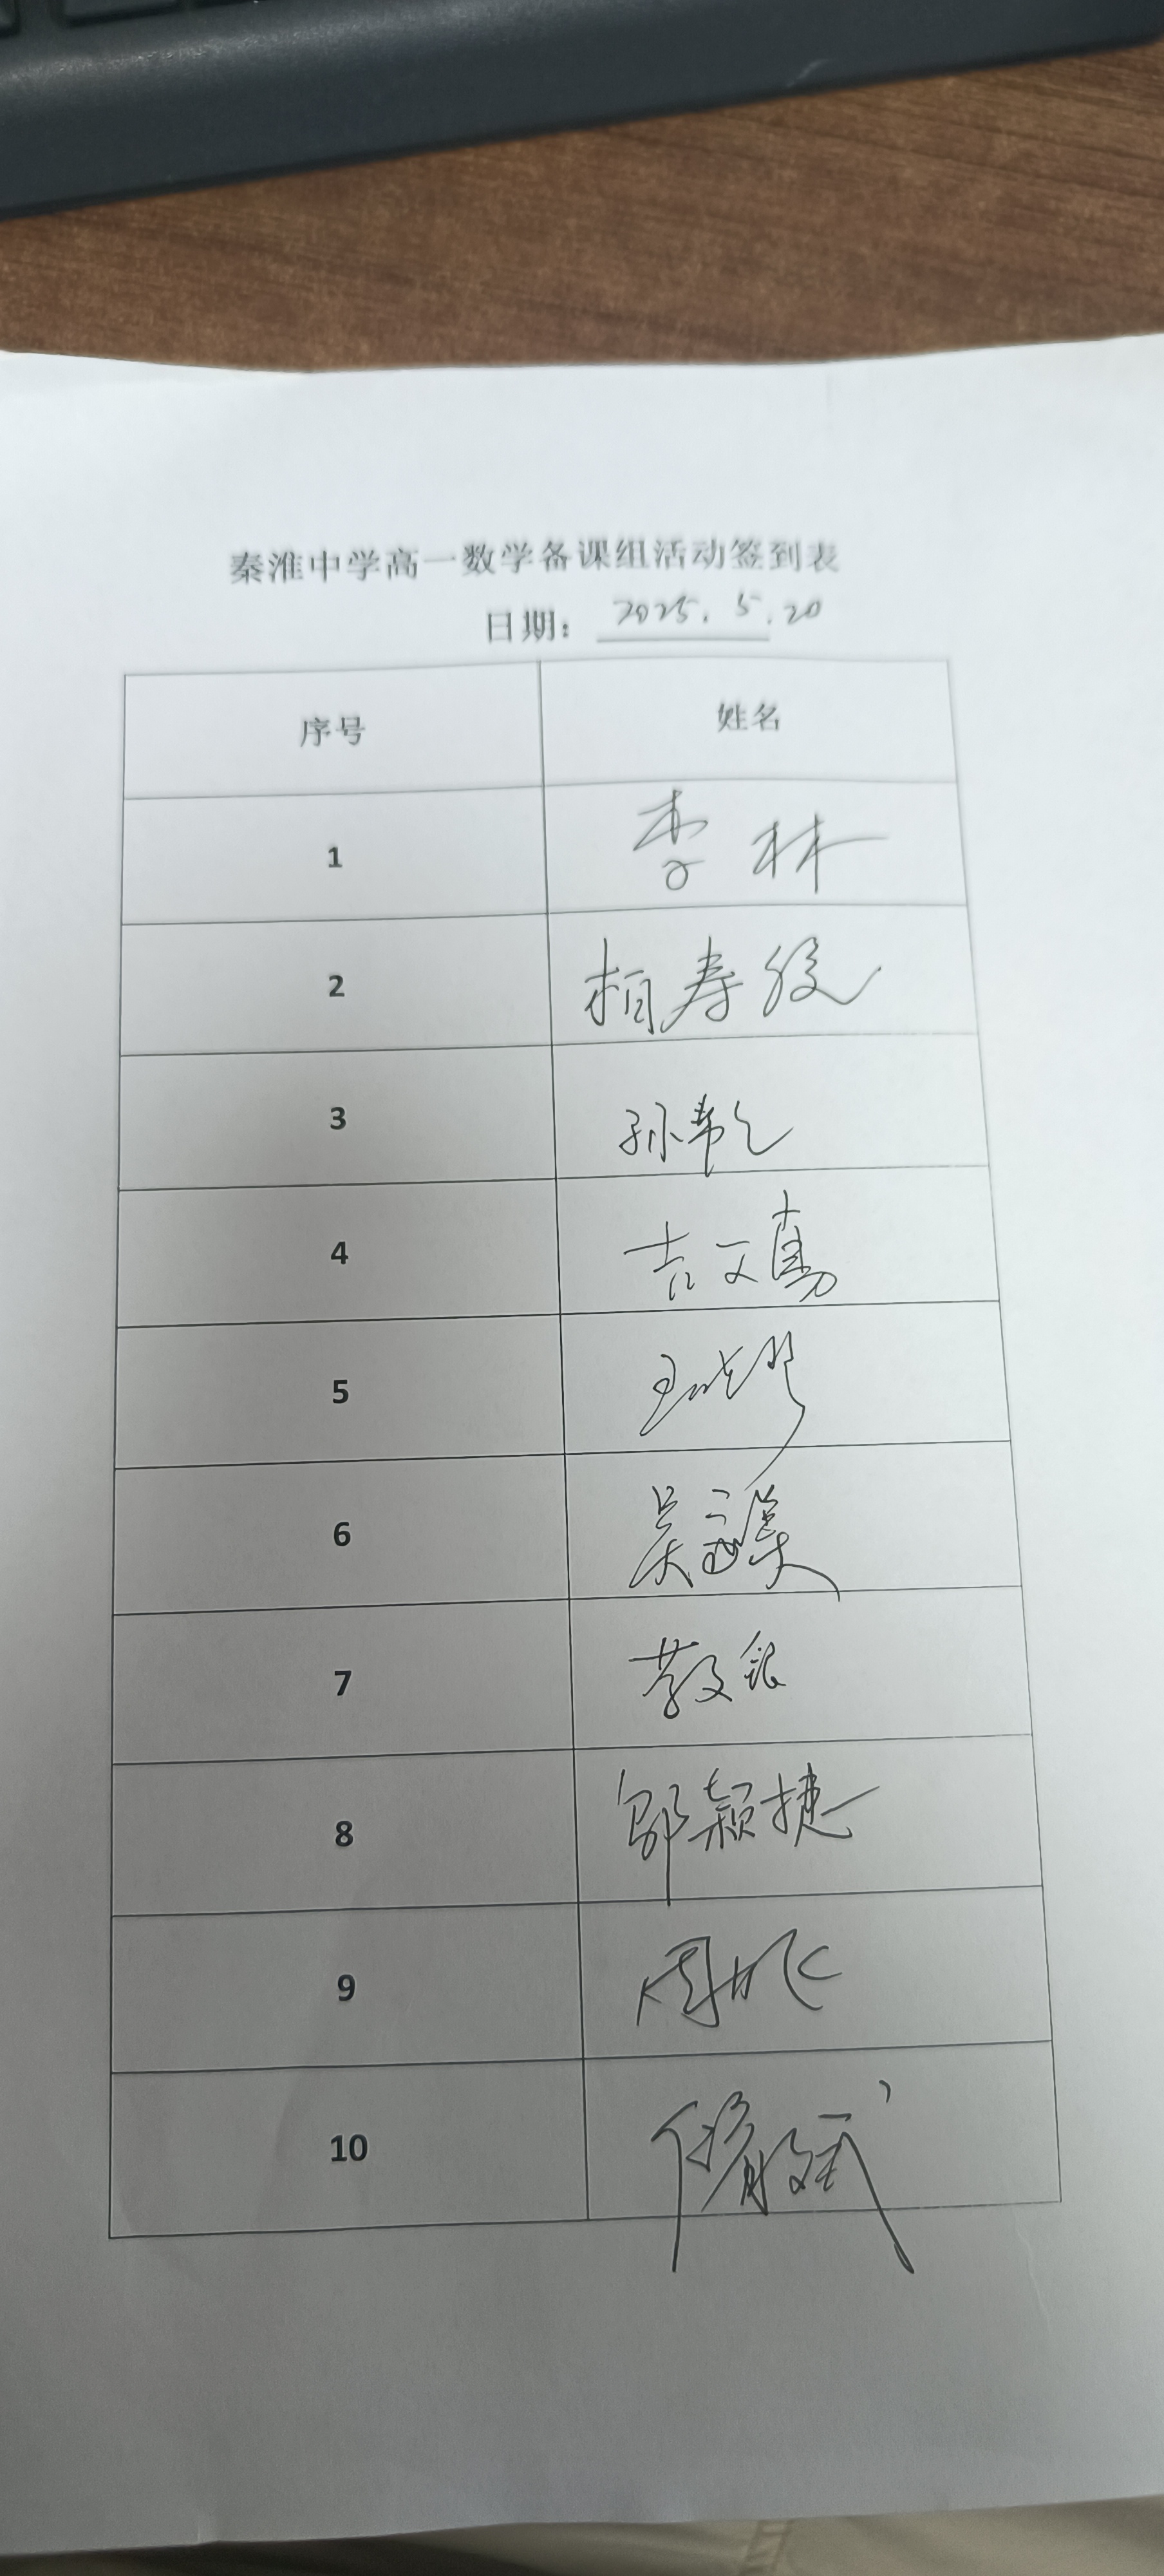 秦淮中学高一数学备课组活动签到表
日期： 2025.5.20
序号 姓名
1 李林
2 柏寿俊
3 孙
4 吉文勇
5 王
6 吴
7 银
8 邹颖捷
9 周
10